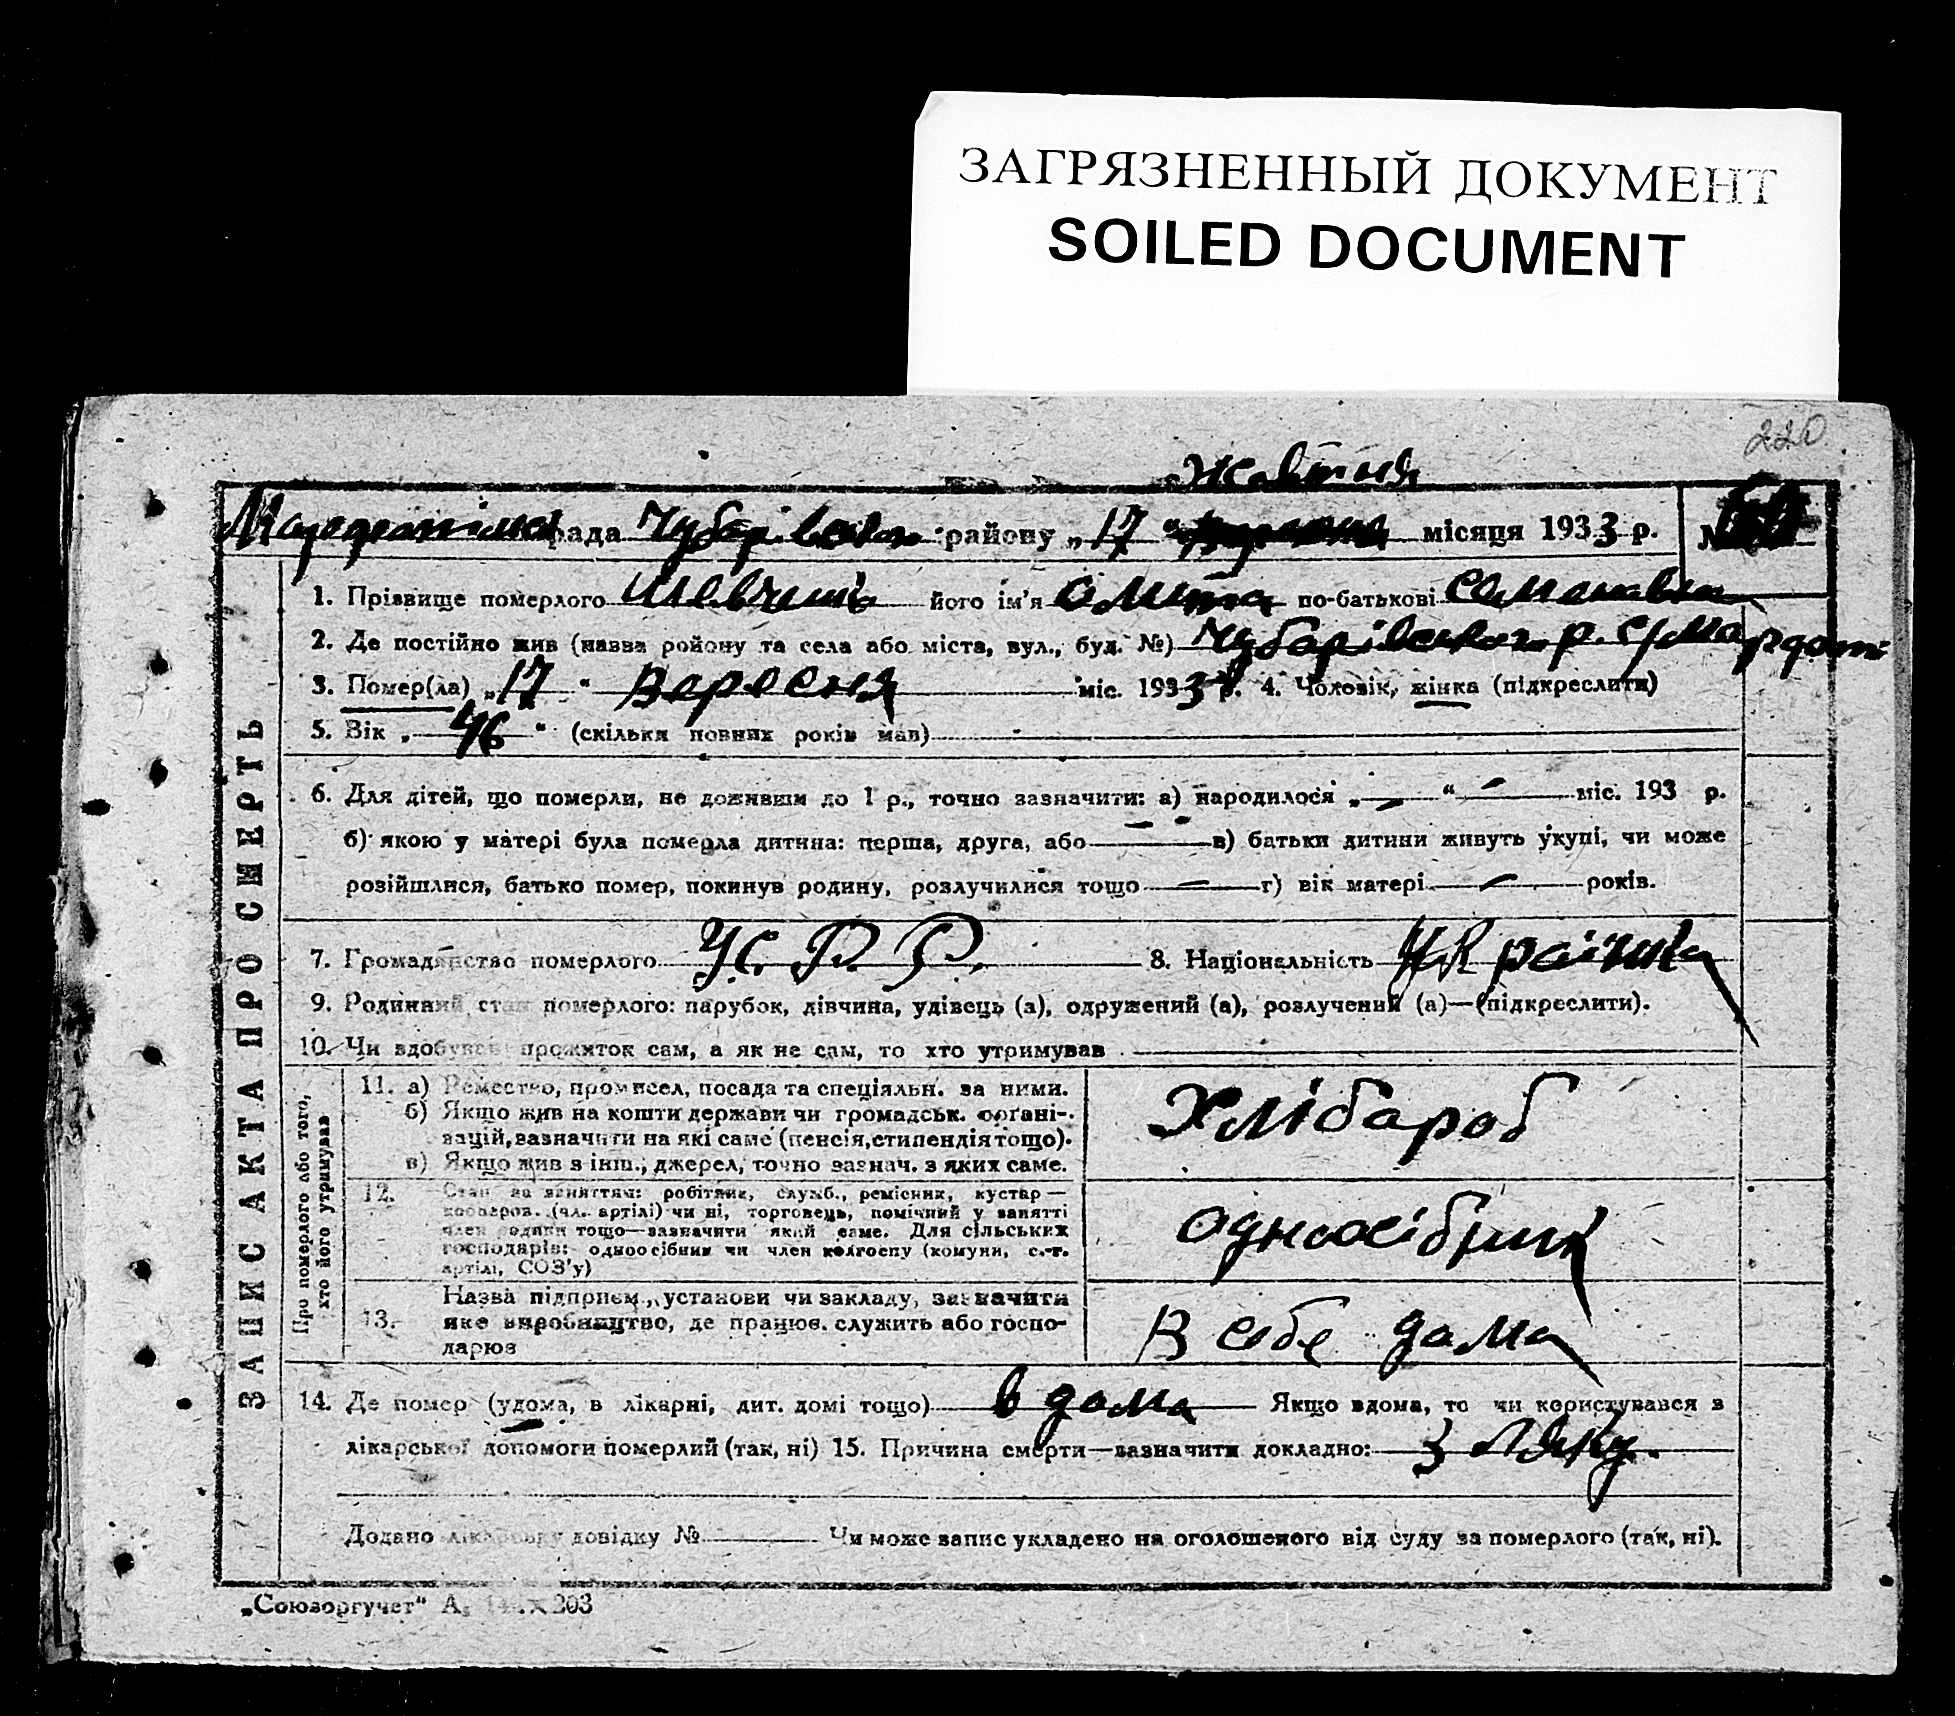 ЗАГРЯЗНЕННЫЙ ДОКУМЕНТ
SOILED DOCUMENT
220
Жовтня
рада Чубарівського району „17“ місяця 1933 р. №
1. Прізвище померлого його ім'я по-батькові
2. Де постійно жив (назва ройону та села або міста, вул., буд. №) Чубарівського р. с/
3. Помер(ла) „17“ Вересня міс. 1933 р. 4. Чоловік, жінка (підкреслити)
5. Вік „46“ (скільки повних років мав)
6. Для дітей, що померли, не доживши до 1 р., точно зазначити: а) народилося „—“ — міс. 193 р.
б) якою у матері була померла дитина: перша, друга, або — — в) батьки дитини живуть укупі, чи може
розійшлися, батько помер, покинув родину, розлучилися тощо — г) вік матері — років.
7. Громадянство померлого У. С. Р. Р. 8. Національність Українка
9. Родинний стан померлого: парубок, дівчина, удівець (а), одружений (а), розлучений (а)—(підкреслити).
10. Чи здобував прожиток сам, а як не сам, то хто утримував
ЗАПИС АКТА ПРО СМЕРТЬ
Про померлого або того,
хто його утримував
11. а) Ремество, промисел, посада та спеціяльн. за ними.
б) Якщо жив на кошти держави чи громадськ. органі-
зацій, зазначити на які саме (пенсія, стипендія тощо).
в) Якщо жив з інш., джерел, точно зазнач. з яких саме.
Хлібароб
12. Стан за заняттям: робітник, служб., ремісник, кустар—
кооперов. (чл. артілі) чи ні, торговець, помічний у занятті
член родини тощо—зазначити який саме. Для сільських
господарів: одноосібник чи член колгоспу (комуни, с.-г.
артілі, СОЗ'у)
одноосібник
13. Назва підприєм., установи чи закладу, зазначити
яке виробництво, де працюв. служить або госпо-
дарюв
В себе дома
14. Де помер (удома, в лікарні, дит. домі тощо) в дома Якщо вдома, то чи користувався з
лікарської допомоги померлий (так, ні) 15. Причина смерти—зазначити докладно: З ляку.
Додано лікарську довідку № Чи може запис укладено на оголошеного від суду за померлого (так, ні).
„Союзоргучет“